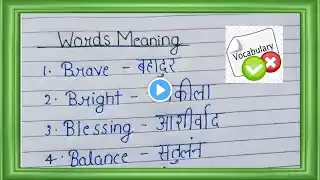 Words Meaning
Vocabulary
1. Brave - बहादुर
2. Bright - कीला
3. Blessing - आशीर्वाद
4. Balance - सतुलंन